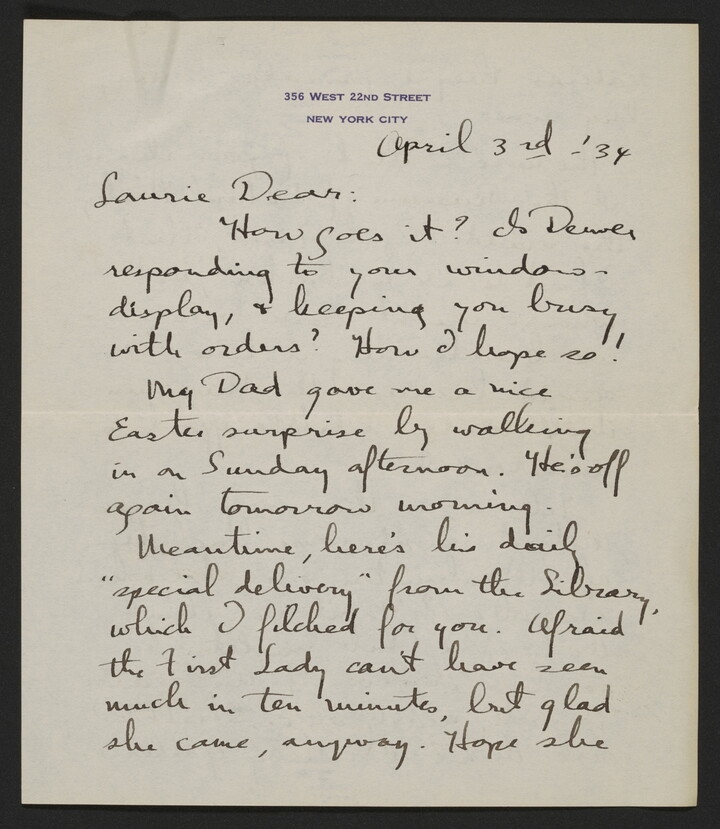 356 West 22nd Street
New York City
April 3rd - '34
Laurie Dear:
How goes it? Is Denver
responding to your window-
display, & keeping you busy
with orders? How I hope so!
My Dad gave me a nice
Easter surprise by walking
in on Sunday afternoon. He's off
again tomorrow morning.
Meantime, here's his daily
"special delivery" from the Library,
which I filched for you. Afraid
the First Lady can't have seen
much in ten minutes, but glad
she came, anyway. Hope she